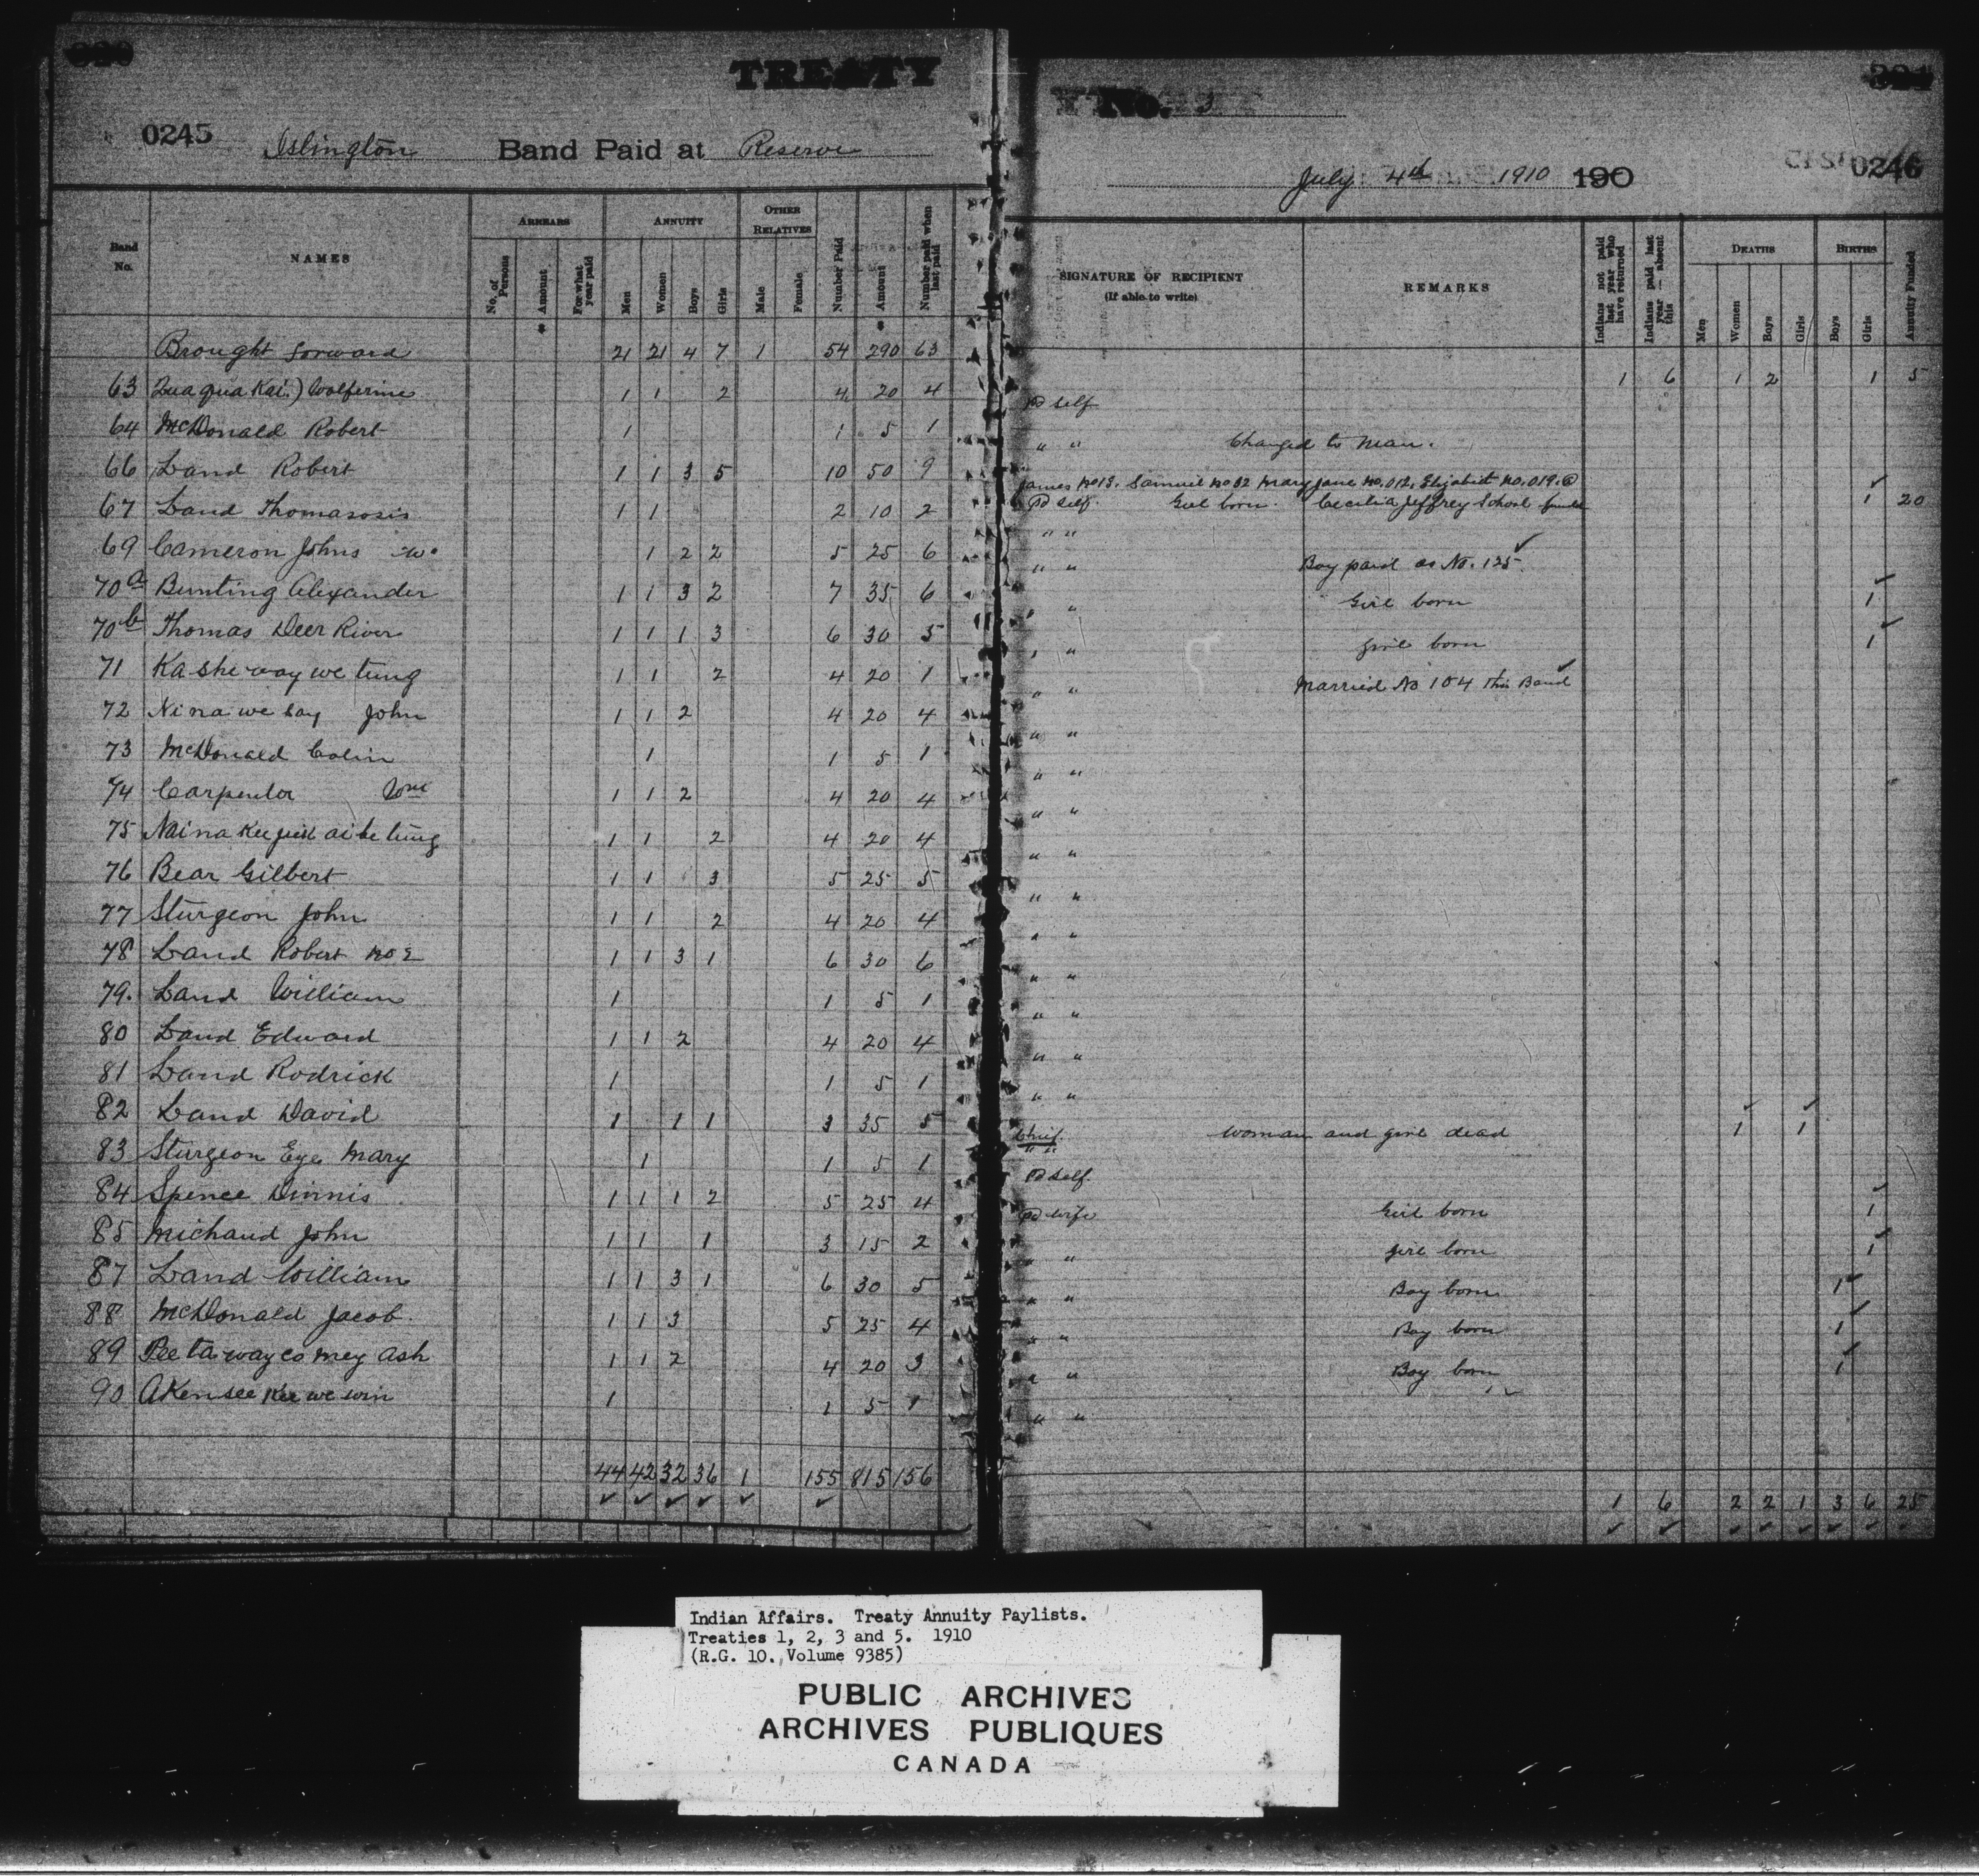 TREATY
No. 3
0245 Islington Band Paid at Reserve
July 4th 1910 190
0246
Band No. NAMES ARREARS No. of Persons Amount For what year paid ANNUITY Men Women Boys Girls OTHER RELATIVES Male Female Number Paid Amount Number paid when last paid
SIGNATURE OF RECIPIENT (If able to write) REMARKS Indians not paid last year who have returned Indians paid last year — absent this DEATHS Men Women Boys Girls BIRTHS Boys Girls Annuity Funded
Brought forward 21 21 4 7 1 54 290 63 1 6 1 2 1 5
63 Quaquakai) Wolferine 1 1 2 4 20 4 Pd self
64 McDonald Robert 1 1 5 1 " " Changed to man.
James No 13. Samuel No 32 Mary Jane No. 012, Elizabeth No. 019.
66 Land Robert 1 1 3 5 10 50 9 Pd self. Girl born. Cecilia Jeffrey School 1 20
67 Land Thomasosis 1 1 2 10 2 " "
69 Cameron Johns w. 1 2 2 5 25 6 " " Boy paid as No. 125.
70a Bunting Alexander 1 1 3 2 7 35 6 " " Girl born 1
70b Thomas Deer River 1 1 1 3 6 30 5 " " girl born 1
71 Ka she way we tung 1 1 2 4 20 1 " " Married No 104 this Band
72 Nina we bay John 1 1 2 4 20 4 " "
73 McDonald Colin 1 1 5 1 " "
74 Carpenter 1 1 2 4 20 4 " "
75 Naina Kee jick ai be tung 1 1 2 4 20 4 " "
76 Bear Gilbert 1 1 3 5 25 5 " "
77 Sturgeon John 1 1 2 4 20 4 " "
78 Land Robert No 2 1 1 3 1 6 30 6 " "
79. Land William 1 1 5 1 " "
80 Land Edward 1 1 2 4 20 4 " "
81 Land Rodrick 1 1 5 1 " "
82 Land David 1 1 1 3 35 5 Chief. " " woman and girl dead 1 1
83 Sturgeon Eye Mary 1 1 5 1 Pd self.
84 Spence Dinnis 1 1 1 2 5 25 4 Pd wife Girl born 1
85 Michaud John 1 1 1 3 15 2 " " girl born 1
87 Land William 1 1 3 1 6 30 5 " " Boy born 1
88 McDonald Jacob. 1 1 3 5 25 4 " " Boy born 1
89 Pee ta way co mey ash 1 1 2 4 20 3 " " Boy born 1
90 Akensee Kee we win 1 1 5 1 " "
44 42 32 36 1 155 815 156 1 6 2 2 1 3 6 25
Indian Affairs. Treaty Annuity Paylists.
Treaties 1, 2, 3 and 5. 1910
(R.G. 10. Volume 9385)
PUBLIC ARCHIVES
ARCHIVES PUBLIQUES
CANADA